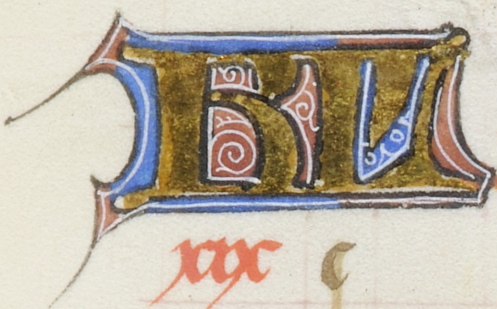 KL
xix c